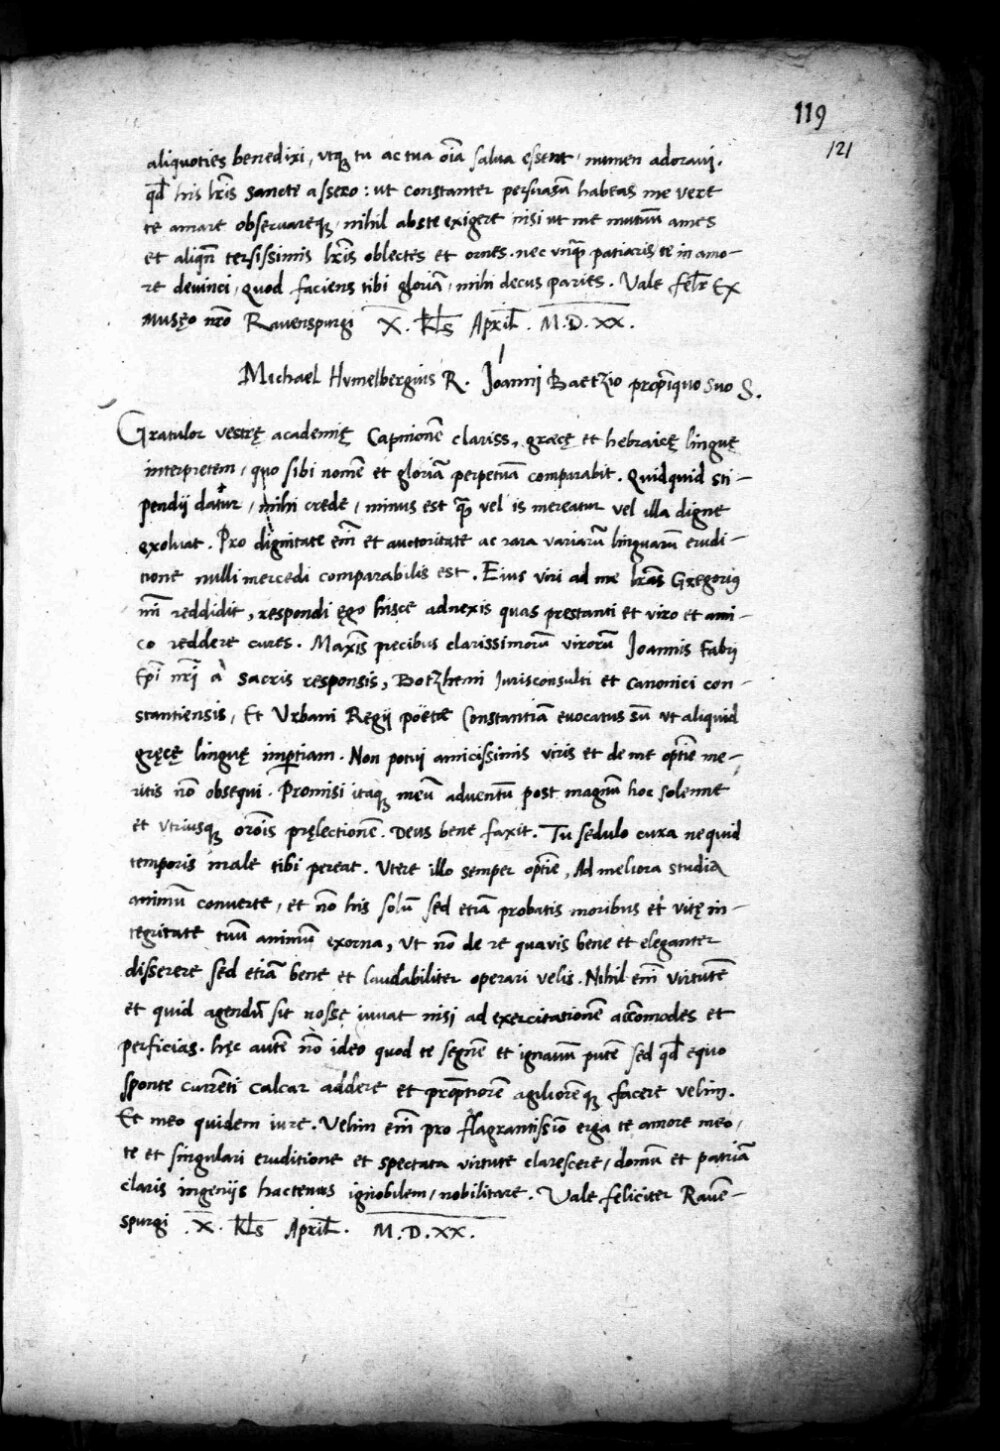 119
121
aliquoties benedixi, vtq; tu ac tua oı̃a salua essent, numen adoraui.
qd̃ his lr̃is sancte assero: ut constanter persuasũ habeas me vere
te amare obseruareq;, nihil abs te exigere nisi ut me mutuũ ames
et aliqñ tersissimis lr̃is oblectes et ornes. nec vnq̃ patiaris te in amo-
re deuinci, quod faciens tibi gloriã, mihi decus paries. Vale felr̃ Ex
musęo nr̃o Rauenspurgi X. Kl̃s April̃. M.D.XX.
Michael Hvmelbergius R. Joanni Baetzio propĩquo suo S.
Gratulor vestrę academię Capnionẽ clariss, græcę et hebraicę linguę
interpretem, quo sibi nomẽ et gloriã perpetuã comparabit. Quidquid sti-
pendij datur, mihi crede, minus est q̃ vel is mereatur vel illa digne
exoluat. Pro dignitate em̃ et auctoritate ac rara variarũ linguarum erudi-
tione nulli mercedi comparabilis est. Eius viri ad me lr̃as Gregoriꝰ
mı̃ reddidit, respondi ego hisce adnexis quas prestanti et viro et ami-
co reddere cures. Maxĩs precibus clarissimorũ virorũ Joannis Fabri
Ep̃i nr̃i à sacris responsis, Botzhemi Jurisconsulti et canonici con-
stantiensis, Et Vrbani Regij poëtæ Constantiã euocatus sũ vt aliquid
gręcę linguę impertiam. Non potui amicissimis viris et de me optĩe me-
ritis nõ obsequi. Promisi itaq; meũ aduentũ post magnũ hoc solenne
et vtriusq; orõis pręlectionẽ. Deus bene faxit. Tu sedulo cura ne quid
temporis male tibi pereat. Vtere illo semper optĩe, Ad meliora studia
animũ conuerte, et nõ his solũ sed etiã probatis moribus et vitę in-
tegritate tuũ animũ exorna, vt nõ de re quavis bene et eleganter
disserere sed etiã bene et laudabiliter operari velis. Nihil em̃ virtutẽ
et quid agendũ sit nosse iuuat nisi ad exercitationẽ accõmodes et
perficias. hęc autẽ nõ ideo quod te segnẽ et ignauũ putẽ sed qd̃ equo
sponte currẽti calcar addere et prõptiorẽ agiliorẽq; facere velim.
Et meo quidem iure. Velim em̃ pro flagrantissĩo erga te amore meo,
te et singulari eruditione et spectata virtute clarescere, domũ et patriã
claris ingenijs hactenus ignobilem, nobilitare. Vale feliciter Rauẽ-
spurgi .X. Kl̃s April̃. M.D.XX.